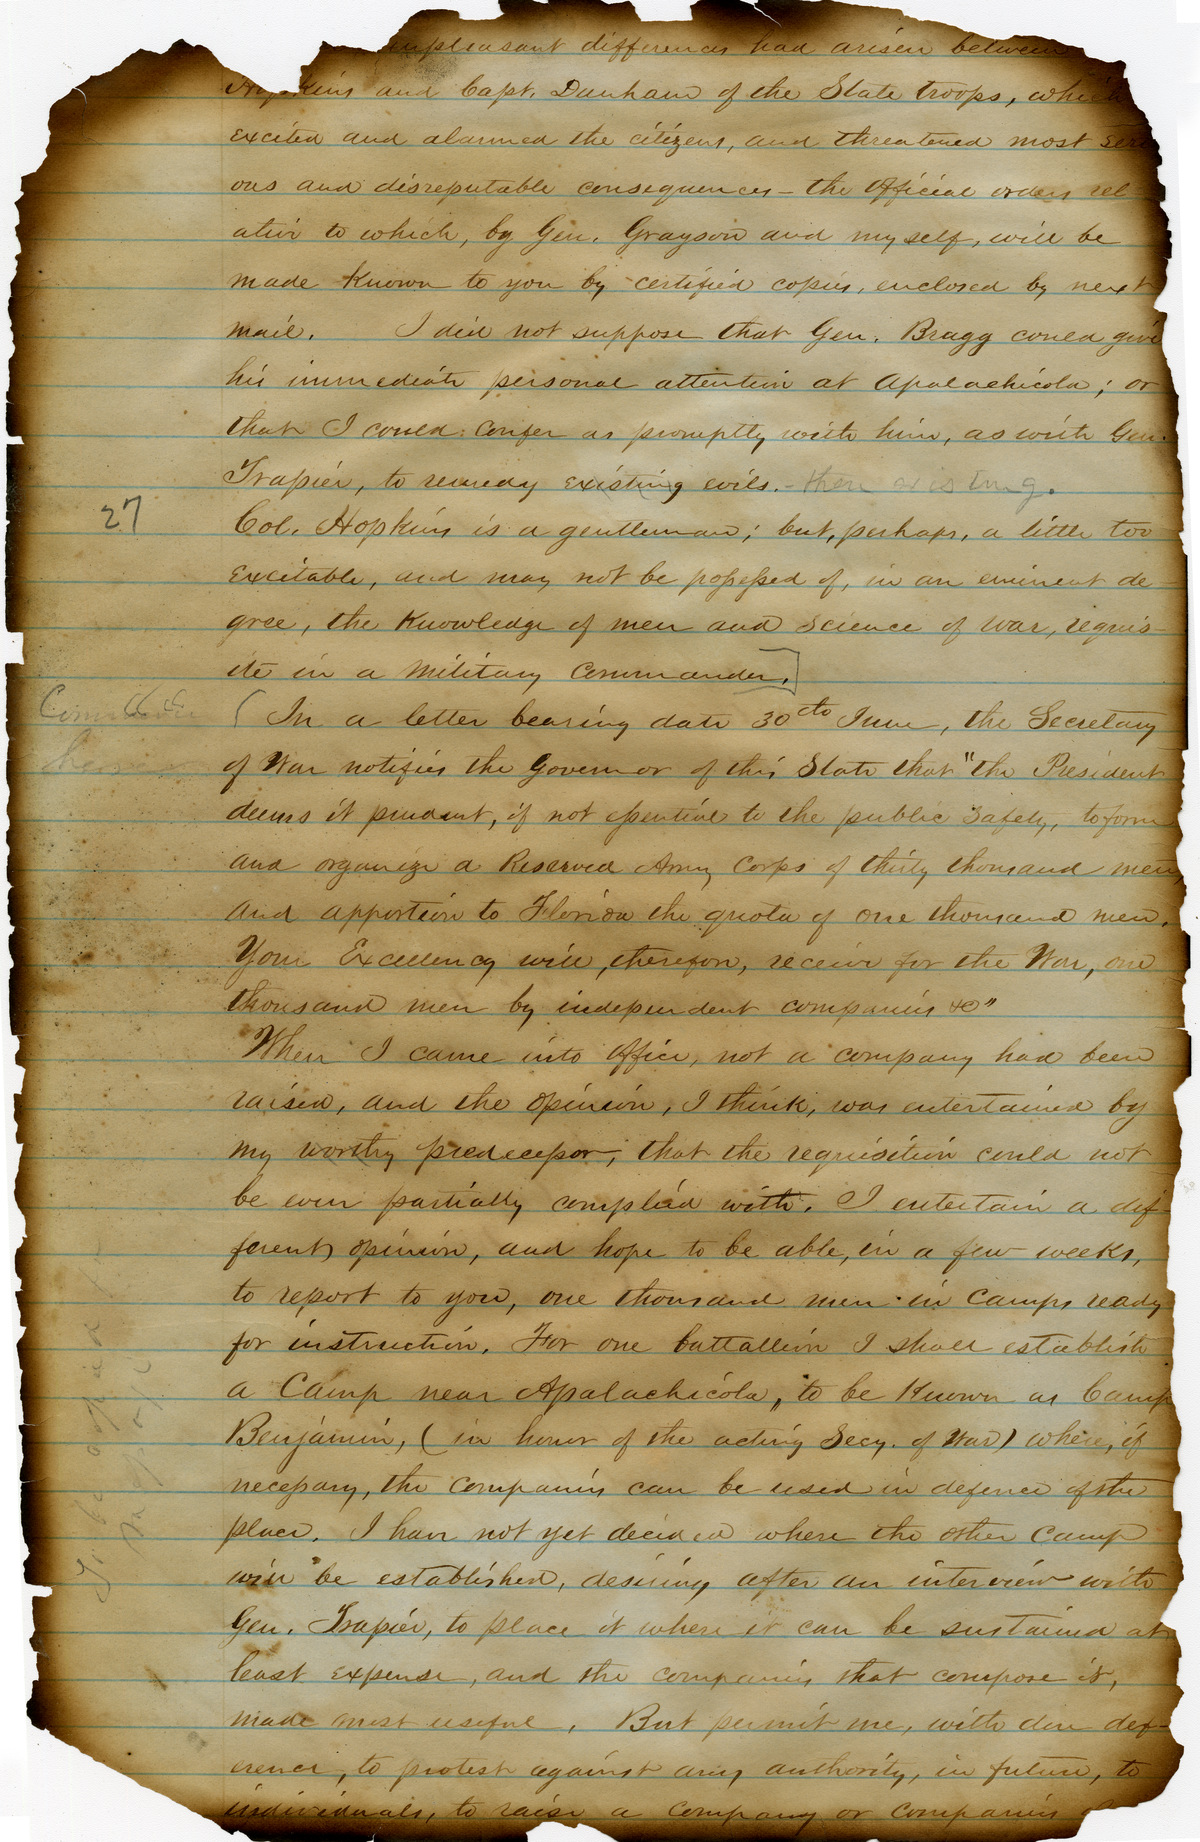 unpleasant differences had arisen between
Hopkins and Capt. Dunham of the State troops, which
excited and alarmed the citizens, and threatened most seri
ous and disreputable consequences – the official orders rel-
ative to which, by Gen. Grayson and myself, will be
made known to you by certified copies, enclosed by next
mail. I did not suppose that Gen. Bragg could give
his immediate personal attention at Apalachicola; or
that I could confer as promptly with him, as with Gen.
Trapier, to remedy existing evils. – then existing.
27
Col. Hopkins is a gentleman; but, perhaps, a little too
excitable, and may not be possessed of, in an eminent de-
gree, the Knowledge of men and science of war, requis-
ite in a Military Commander.]
( In a letter bearing date 30th June, the Secretary
of War notifies the Governor of this State that "the President
deems it prudent, if not essential to the public safety, to form
and organize a Reserved Army Corps of thirty thousand men,
and apportion to Florida the quota of one thousand men.
Your Excellency will, therefore, receive for the War, one
thousand men by independent companies &c"
When I came into office, not a company had been
raised, and the opinion, I think, was entertained by
my worthy predecessor, that the requisition could not
be even partially complied with. I entertain a dif-
ferent opinion, and hope to be able, in a few weeks,
to report to you, one thousand men in Camps ready
for instruction. For one battallion I shall establish
a Camp near Apalachicola, to be Known as Camp
Benjamin, (in honor of the acting Secy. of War) where, if
necessary, the companies can be used in defence of the
place. I have not yet decided where the other Camp
will be established, desiring after an interview with
Gen. Trapier, to place it where it can be sustained at
least expense, and the companies that compose it,
made most useful. But permit me, with due def-
erence, to protest against any authority, in future, to
individuals, to raise a company or companies
To be copied